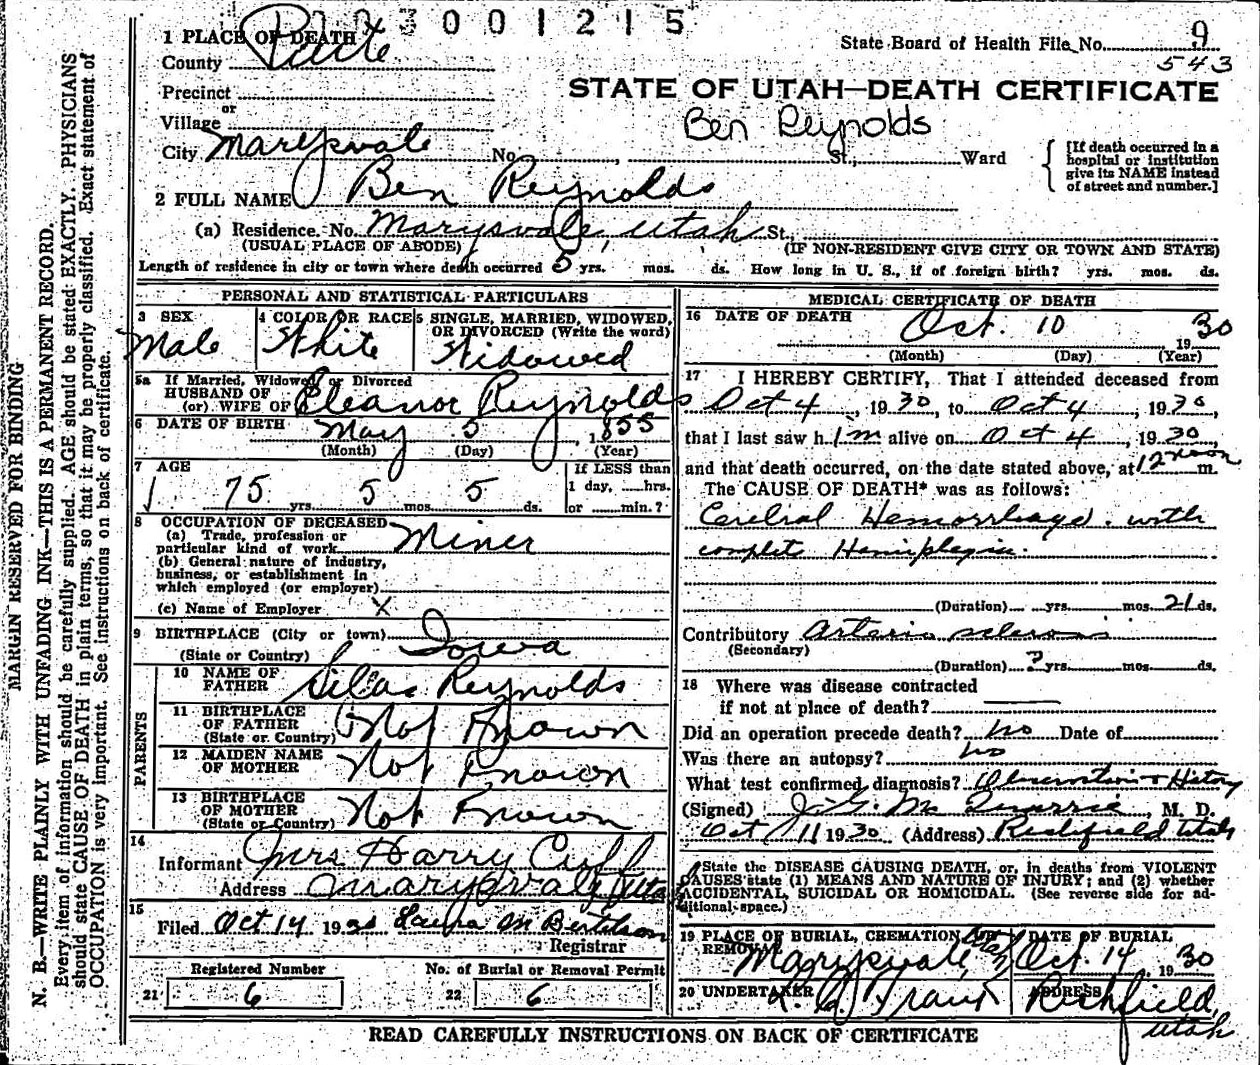 3001215
1 PLACE OF DEATH
County Piute
State Board of Health File No. 9
543
Precinct
or
Village
STATE OF UTAH—DEATH CERTIFICATE
Ben Reynolds
City Marysvale No. , St., Ward
[If death occurred in a hospital or institution give its NAME instead of street and number.]
2 FULL NAME Ben Reynolds
(a) Residence. No. Marysvale, Utah St.,
(USUAL PLACE OF ABODE) (IF NON-RESIDENT GIVE CITY OR TOWN AND STATE)
Length of residence in city or town where death occurred 5 yrs. mos. ds. How long in U. S., if of foreign birth? yrs. mos. ds.
PERSONAL AND STATISTICAL PARTICULARS
3 SEX
Male
4 COLOR OR RACE
White
5 SINGLE, MARRIED, WIDOWED,
OR DIVORCED (Write the word)
Widowed
5a If Married, Widowed or Divorced
HUSBAND OF
(or) WIFE OF Eleanor Reynolds
6 DATE OF BIRTH May 5, 1855
(Month) (Day) (Year)
7 AGE
75 yrs. 5 mos. 5 ds.
If LESS than
1 day, ......hrs.
or ......min.?
8 OCCUPATION OF DECEASED
(a) Trade, profession or
particular kind of work Miner
(b) General nature of industry,
business, or establishment in
which employed (or employer)
(c) Name of Employer X
9 BIRTHPLACE (City or town)
(State or Country) Iowa
PARENTS
10 NAME OF
FATHER Silas Reynolds
11 BIRTHPLACE
OF FATHER
(State or Country) Not Known
12 MAIDEN NAME
OF MOTHER Not Known
13 BIRTHPLACE
OF MOTHER
(State or Country) Not Known
14
Informant Mrs Harry Cuff
Address Marysvale Utah
15
Filed Oct 14 1930 Laura M Bertelson
Registrar
Registered Number
21 6
No. of Burial or Removal Permit
22 6
MEDICAL CERTIFICATE OF DEATH
16 DATE OF DEATH Oct. 10 1930
(Month) (Day) (Year)
17 I HEREBY CERTIFY, That I attended deceased from
Oct 4, 1930, to Oct 4, 1930,
that I last saw h im alive on Oct 4, 1930,
and that death occurred, on the date stated above, at 12 noon m.
The CAUSE OF DEATH* was as follows:
Cerebral Hemorrhage. with
complete Hemiplegia.
(Duration) yrs. mos. 21 ds.
Contributory Arterio sclerosis
(Secondary)
(Duration) ? yrs. mos. ds.
18 Where was disease contracted
if not at place of death?
Did an operation precede death? no Date of
Was there an autopsy? no
What test confirmed diagnosis? Observation + History
(Signed) J. G. McQuarrie M. D.
Oct 11 1930 (Address) Richfield Utah
*State the DISEASE CAUSING DEATH, or, in deaths from VIOLENT
CAUSES state (1) MEANS AND NATURE OF INJURY; and (2) whether
ACCIDENTAL, SUICIDAL OR HOMICIDAL. (See reverse side for ad-
ditional space.)
19 PLACE OF BURIAL, CREMATION, OR
REMOVAL
Marysvale, Utah
DATE OF BURIAL
Oct. 14 1930
20 UNDERTAKER
ADDRESS
Richfield,
Utah
READ CAREFULLY INSTRUCTIONS ON BACK OF CERTIFICATE
MARGIN RESERVED FOR BINDING
N. B.—WRITE PLAINLY WITH UNFADING INK—THIS IS A PERMANENT RECORD.
Every item of information should be carefully supplied. AGE should be stated EXACTLY. PHYSICIANS
should state CAUSE OF DEATH in plain terms, so that it may be properly classified. Exact statement of
OCCUPATION is very important. See instructions on back of certificate.